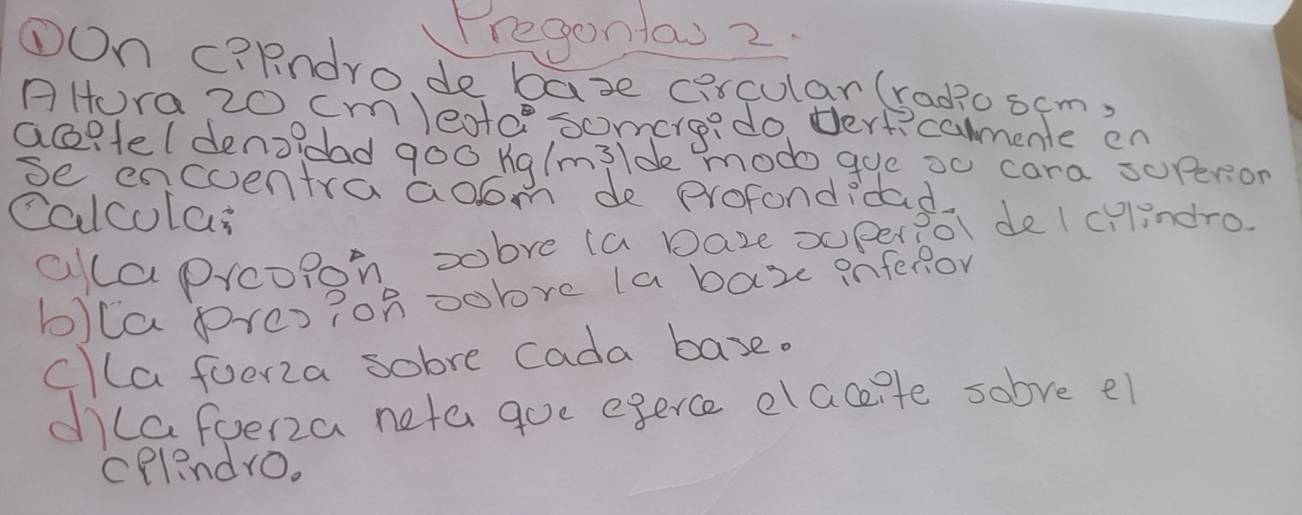 Preguntas 2.
① Un cilindro de base circular (radio 5cm,
Altura 20 cm) está sumergido verticalmente en
aceite (densidad 900 kg/m³) de modo que su cara superior
se encuentra a de profundidad.
Calcula:
a) La presión sobre la base superiol del cilindro.
b) La presión sobre la base inferior
c) La fuerza sobre cada base.
d) La fuerza neta que ejerce el aceite sobre el
cilindro.